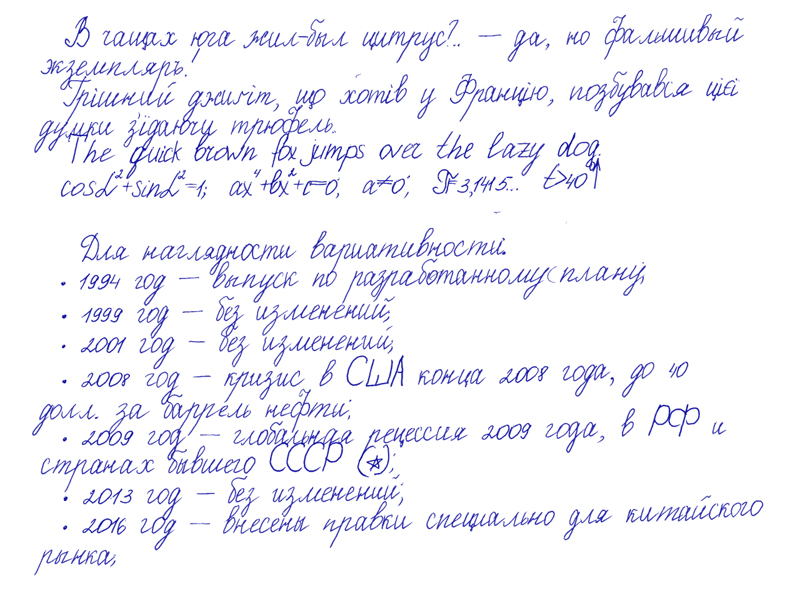 В чащах юга жил-был цитрус?.. — да, но фальшивый
экземпляръ.
Грішний джиґіт, що хотів у Францію, позбувався цієї
думки з'їдаючи трюфель.
The quick brown fox jumps over the lazy dog.
cosα²+sinα²=1; ax⁴+bx²+c=0; a≠0; π=3,1415... t>40°
Для наглядности вариативности.
• 1994 год — выпуск по разработанному плану;
• 1999 год — без изменений;
• 2001 год — без изменений;
• 2008 год — кризис в США конца 2008 года, до 40
долл. за баррель нефти;
• 2009 год — глобальная рецессия 2009 года, в РФ и
странах бывшего СССР (☆);
• 2013 год — без изменений;
• 2016 год — внесены правки специально для китайского
рынка;